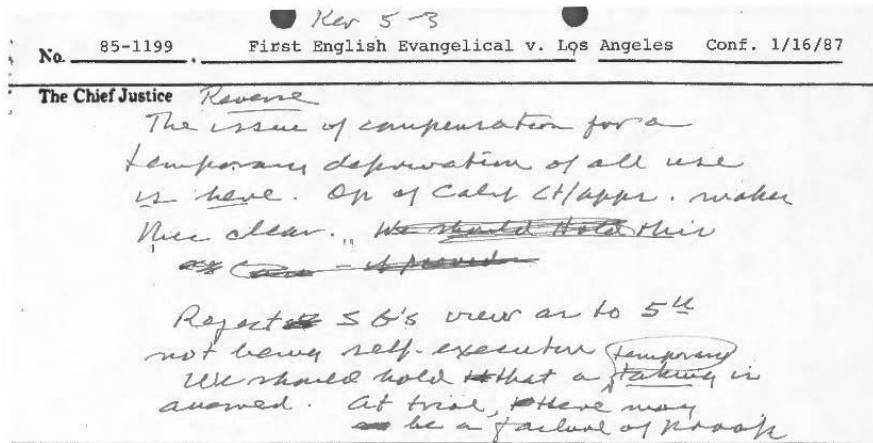 Rev 5-3
No. 85-1199 First English Evangelical v. Los Angeles Conf. 1/16/87
The Chief Justice Reverse
The issue of compensation for a
temporary deprivation of all use
is here. Op of Calif Ct/App. makes
this clear. We should Hold this
as
Rejects SG's view as to 5th
not being self-executing
temporary
We should hold that a taking is
averred. At trial, there may
be a failure of proof